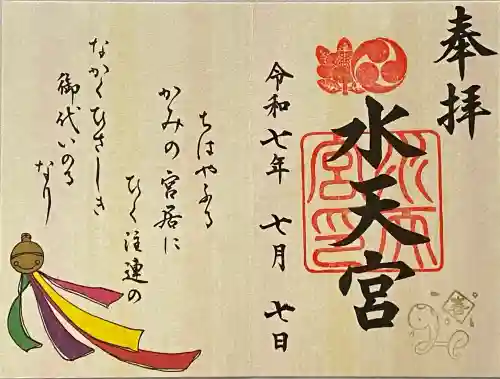 奉拝
水天宮
令和七年 七月 七日
ちはやふる
かみの宮居に
ひく注連の
なかくひさしき
御代いのる
なり
巻